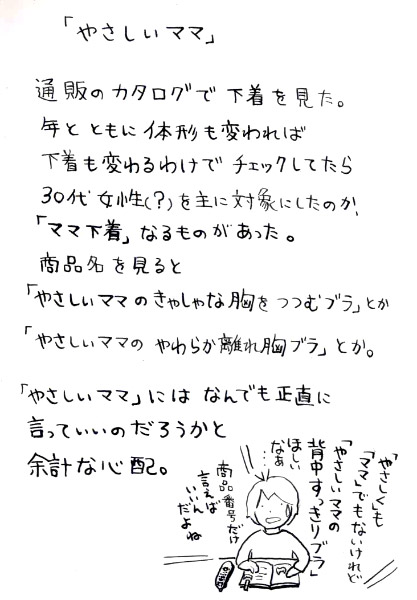 「やさしいママ」
通販のカタログで下着を見た。
年とともに体形も変われば
下着も変わるわけでチェックしてたら
30代女性(?)を主に対象にしたのか、
「ママ下着」なるものがあった。
商品名を見ると
「やさしいママのきゃしゃな胸をつつむブラ」とか
「やさしいママのやわらか離れ胸ブラ」とか。
「やさしいママ」にはなんでも正直に
言っていいのだろうかと
余計な心配。
「やさしく」も
「ママ」でもないけれど
「やさしいママの
背中すっきりブラ」
ほしい
なぁ…
商品番号だけ
言えば
いいん
だよね